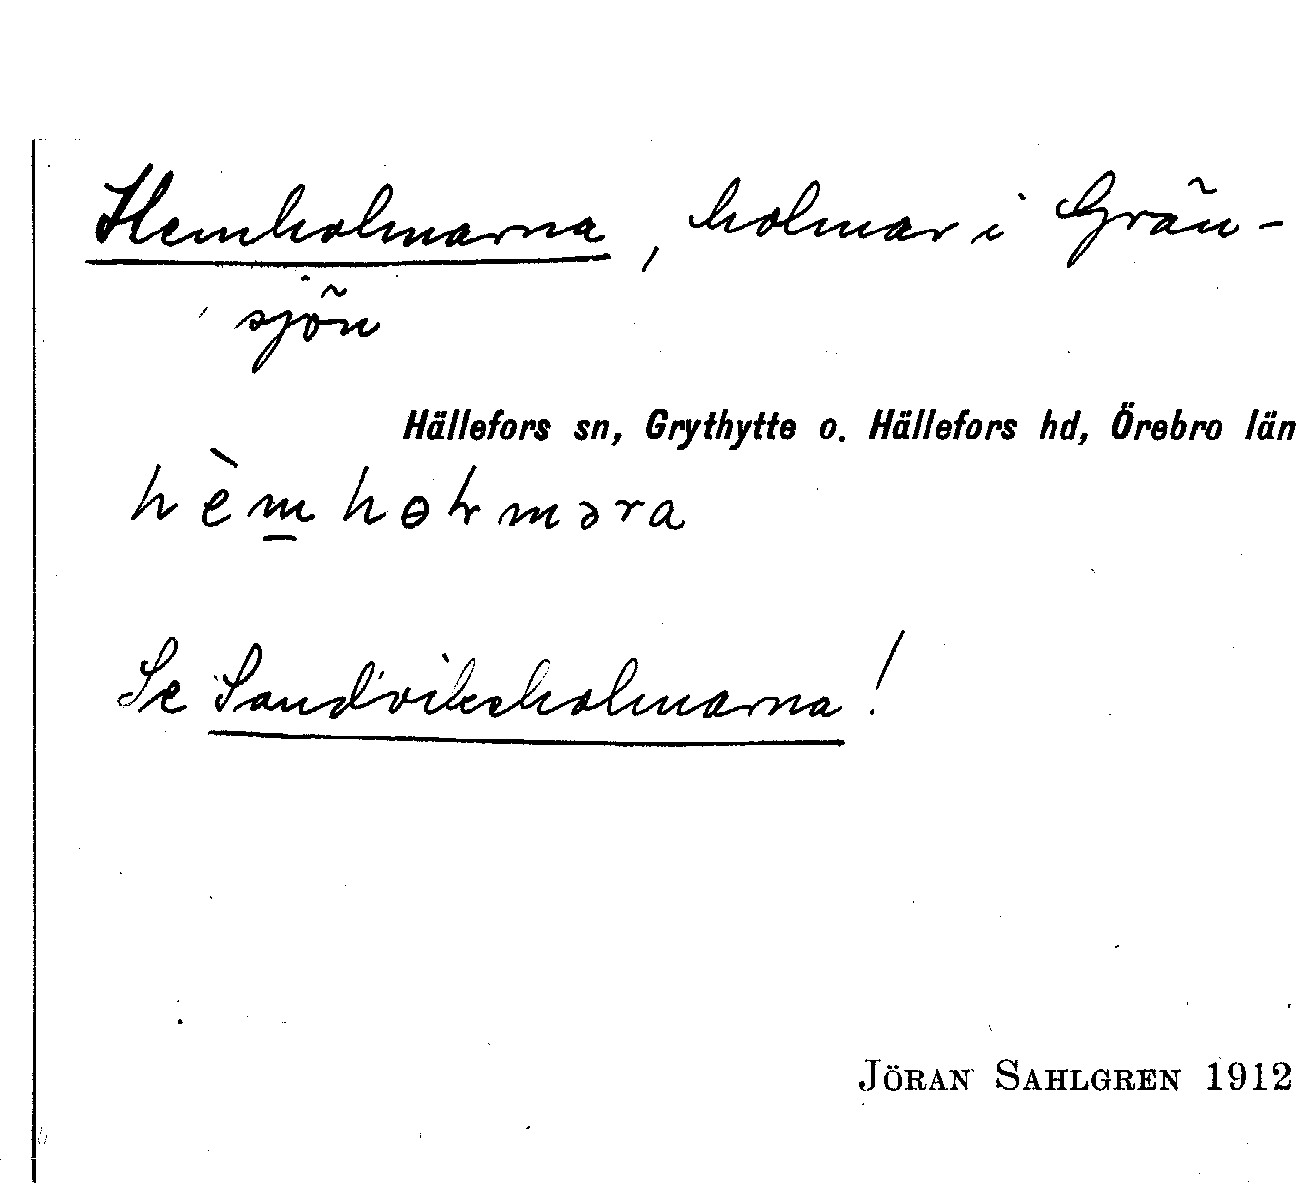 Hemholmarna, holmar i Grän-
sjön
Hällefors sn, Grythytte o. Hällefors hd, Örebro län
hèm̲hɵɫməra
Se Sandviksholmarna!
JÖRAN SAHLGREN 1912